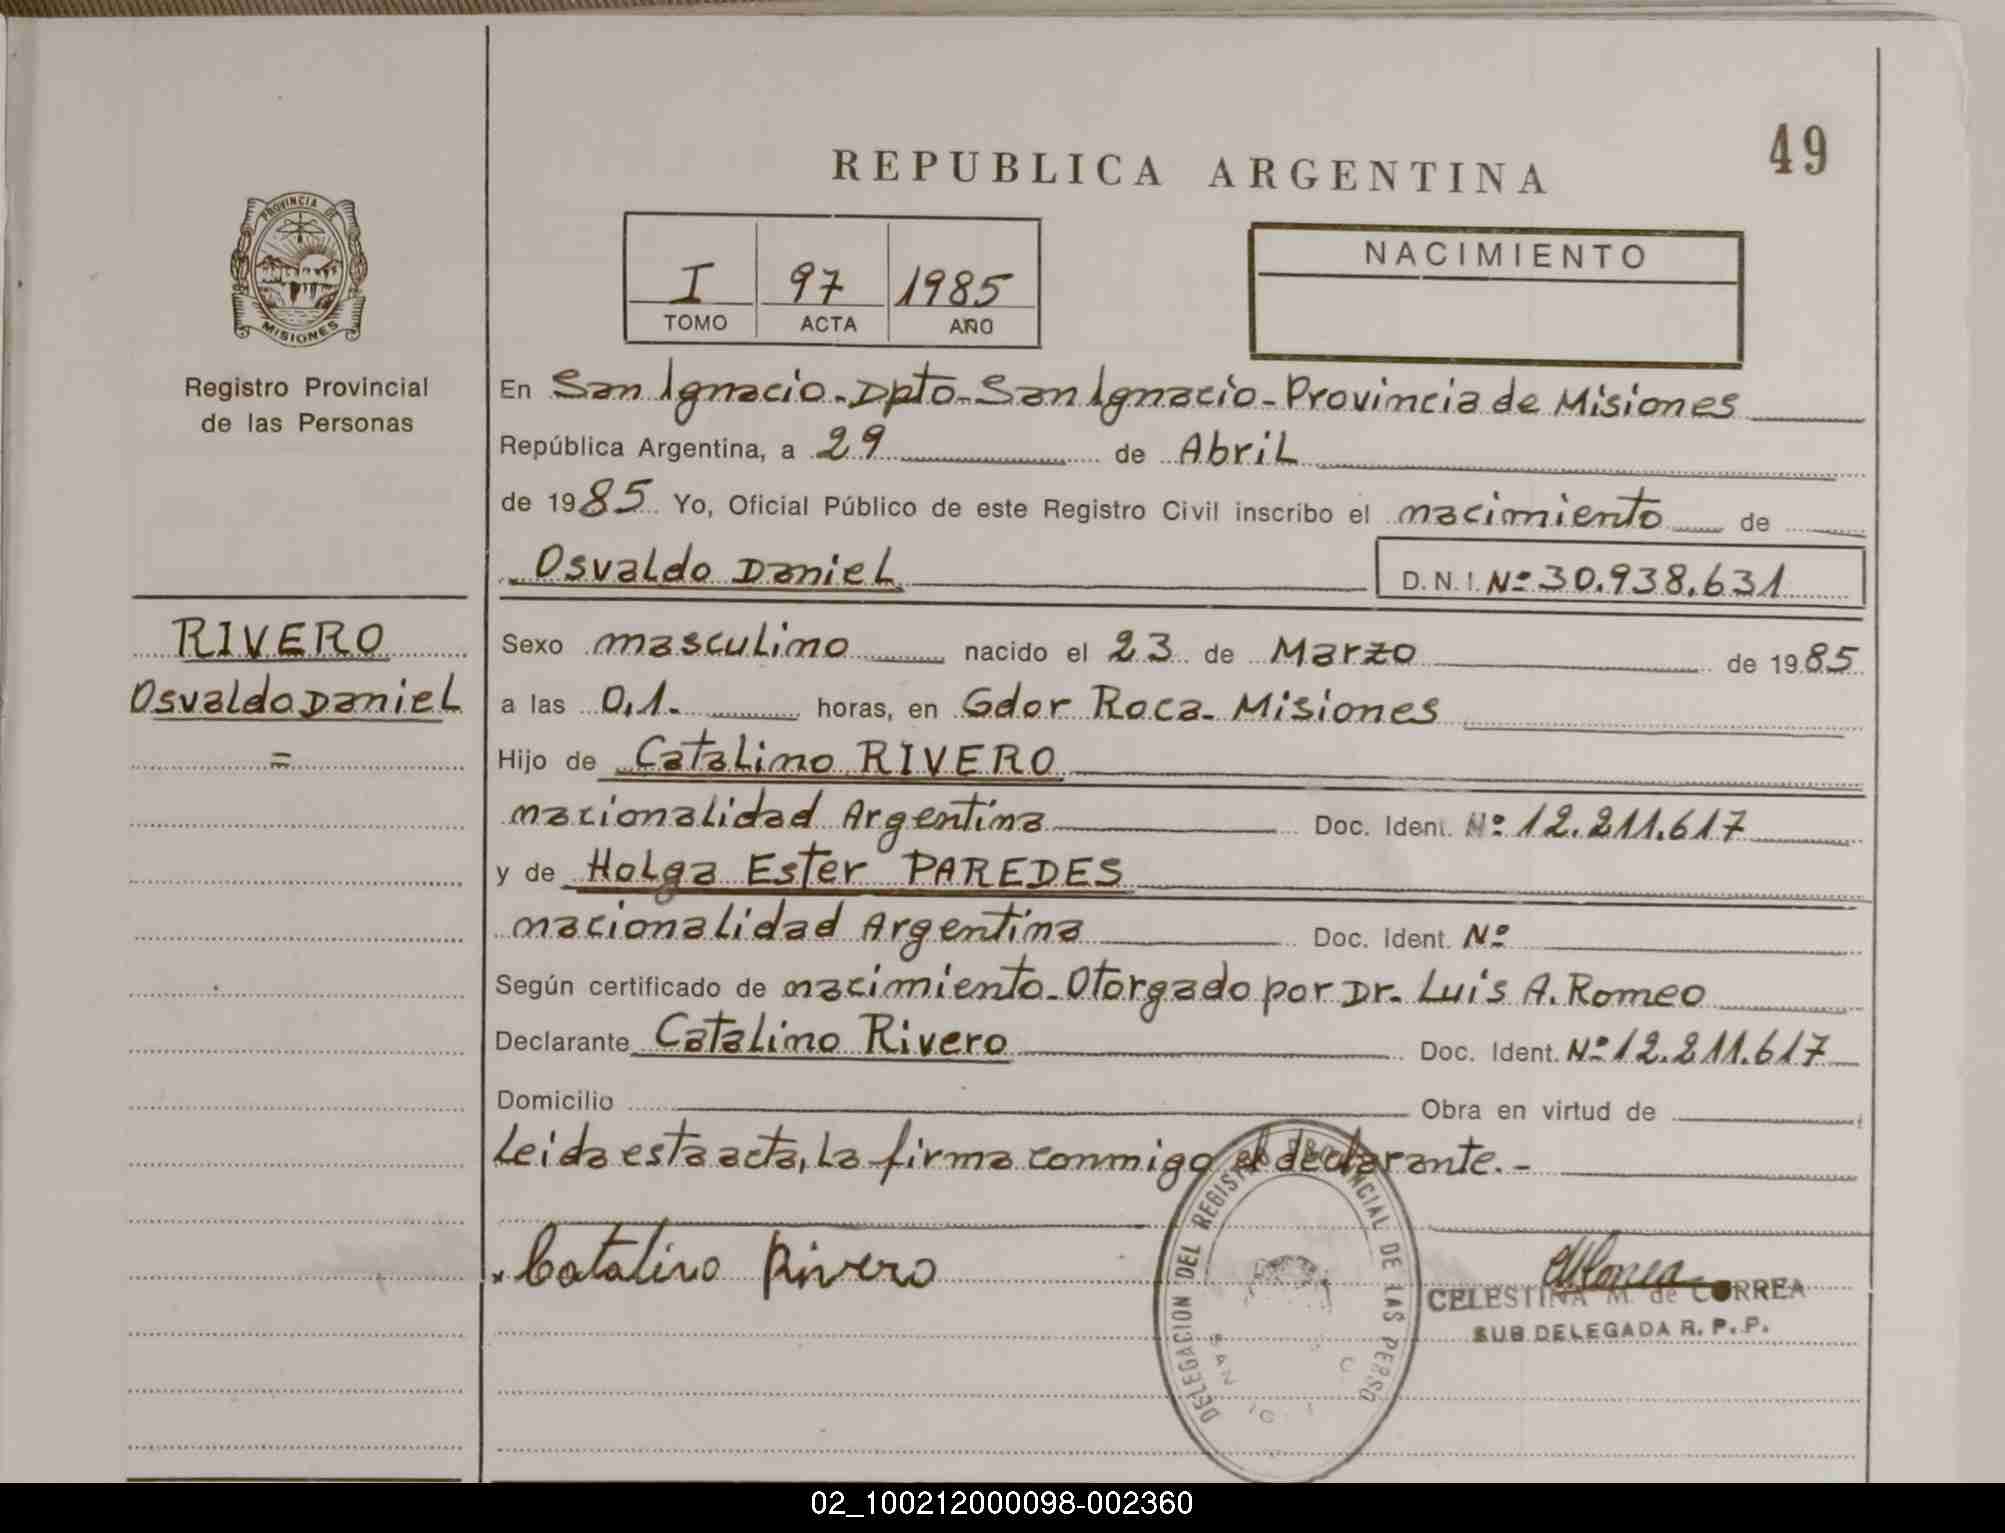 49
REPUBLICA ARGENTINA
PROVINCIA DE
MISIONES
Registro Provincial
de las Personas
I 97 1985
TOMO ACTA AÑO
NACIMIENTO
En San Ignacio - Dpto - San Ignacio - Provincia de Misiones
República Argentina, a 29 de Abril
de 1985 Yo, Oficial Público de este Registro Civil inscribo el nacimiento de
Osvaldo Daniel D.N.I. Nº 30.938.631
RIVERO
Osvaldo Daniel
=
Sexo masculino nacido el 23 de Marzo de 1985
a las 0,1. horas, en Gdor Roca - Misiones
Hijo de Catalino RIVERO
nacionalidad Argentina Doc. Ident. Nº 12.211.617
y de Holga Ester PAREDES
nacionalidad Argentina Doc. Ident. Nº
Según certificado de nacimiento - Otorgado por Dr. Luis A. Romeo
Declarante Catalino Rivero Doc. Ident. Nº 12.211.617
Domicilio Obra en virtud de
Leida esta acta, la firma conmigo el declarante. -
x Catalino Rivero
CELESTINA M. de CORREA
SUB DELEGADA R. P. P.
DELEGACION DEL REGISTRO PROVINCIAL DE LAS PERSO
SAN
02_100212000098-002360